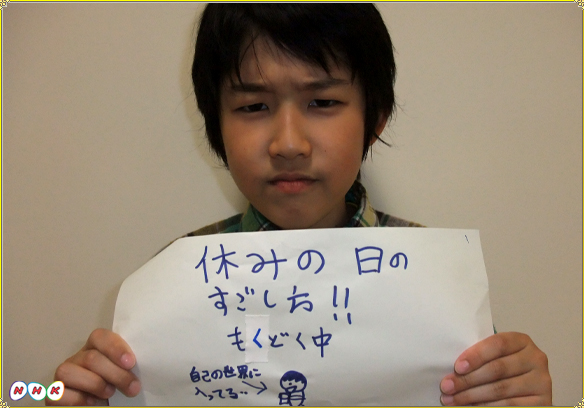 休みの 日の
すごし方!!
もくどく中
自己の世界に
入ってる‥
NHK